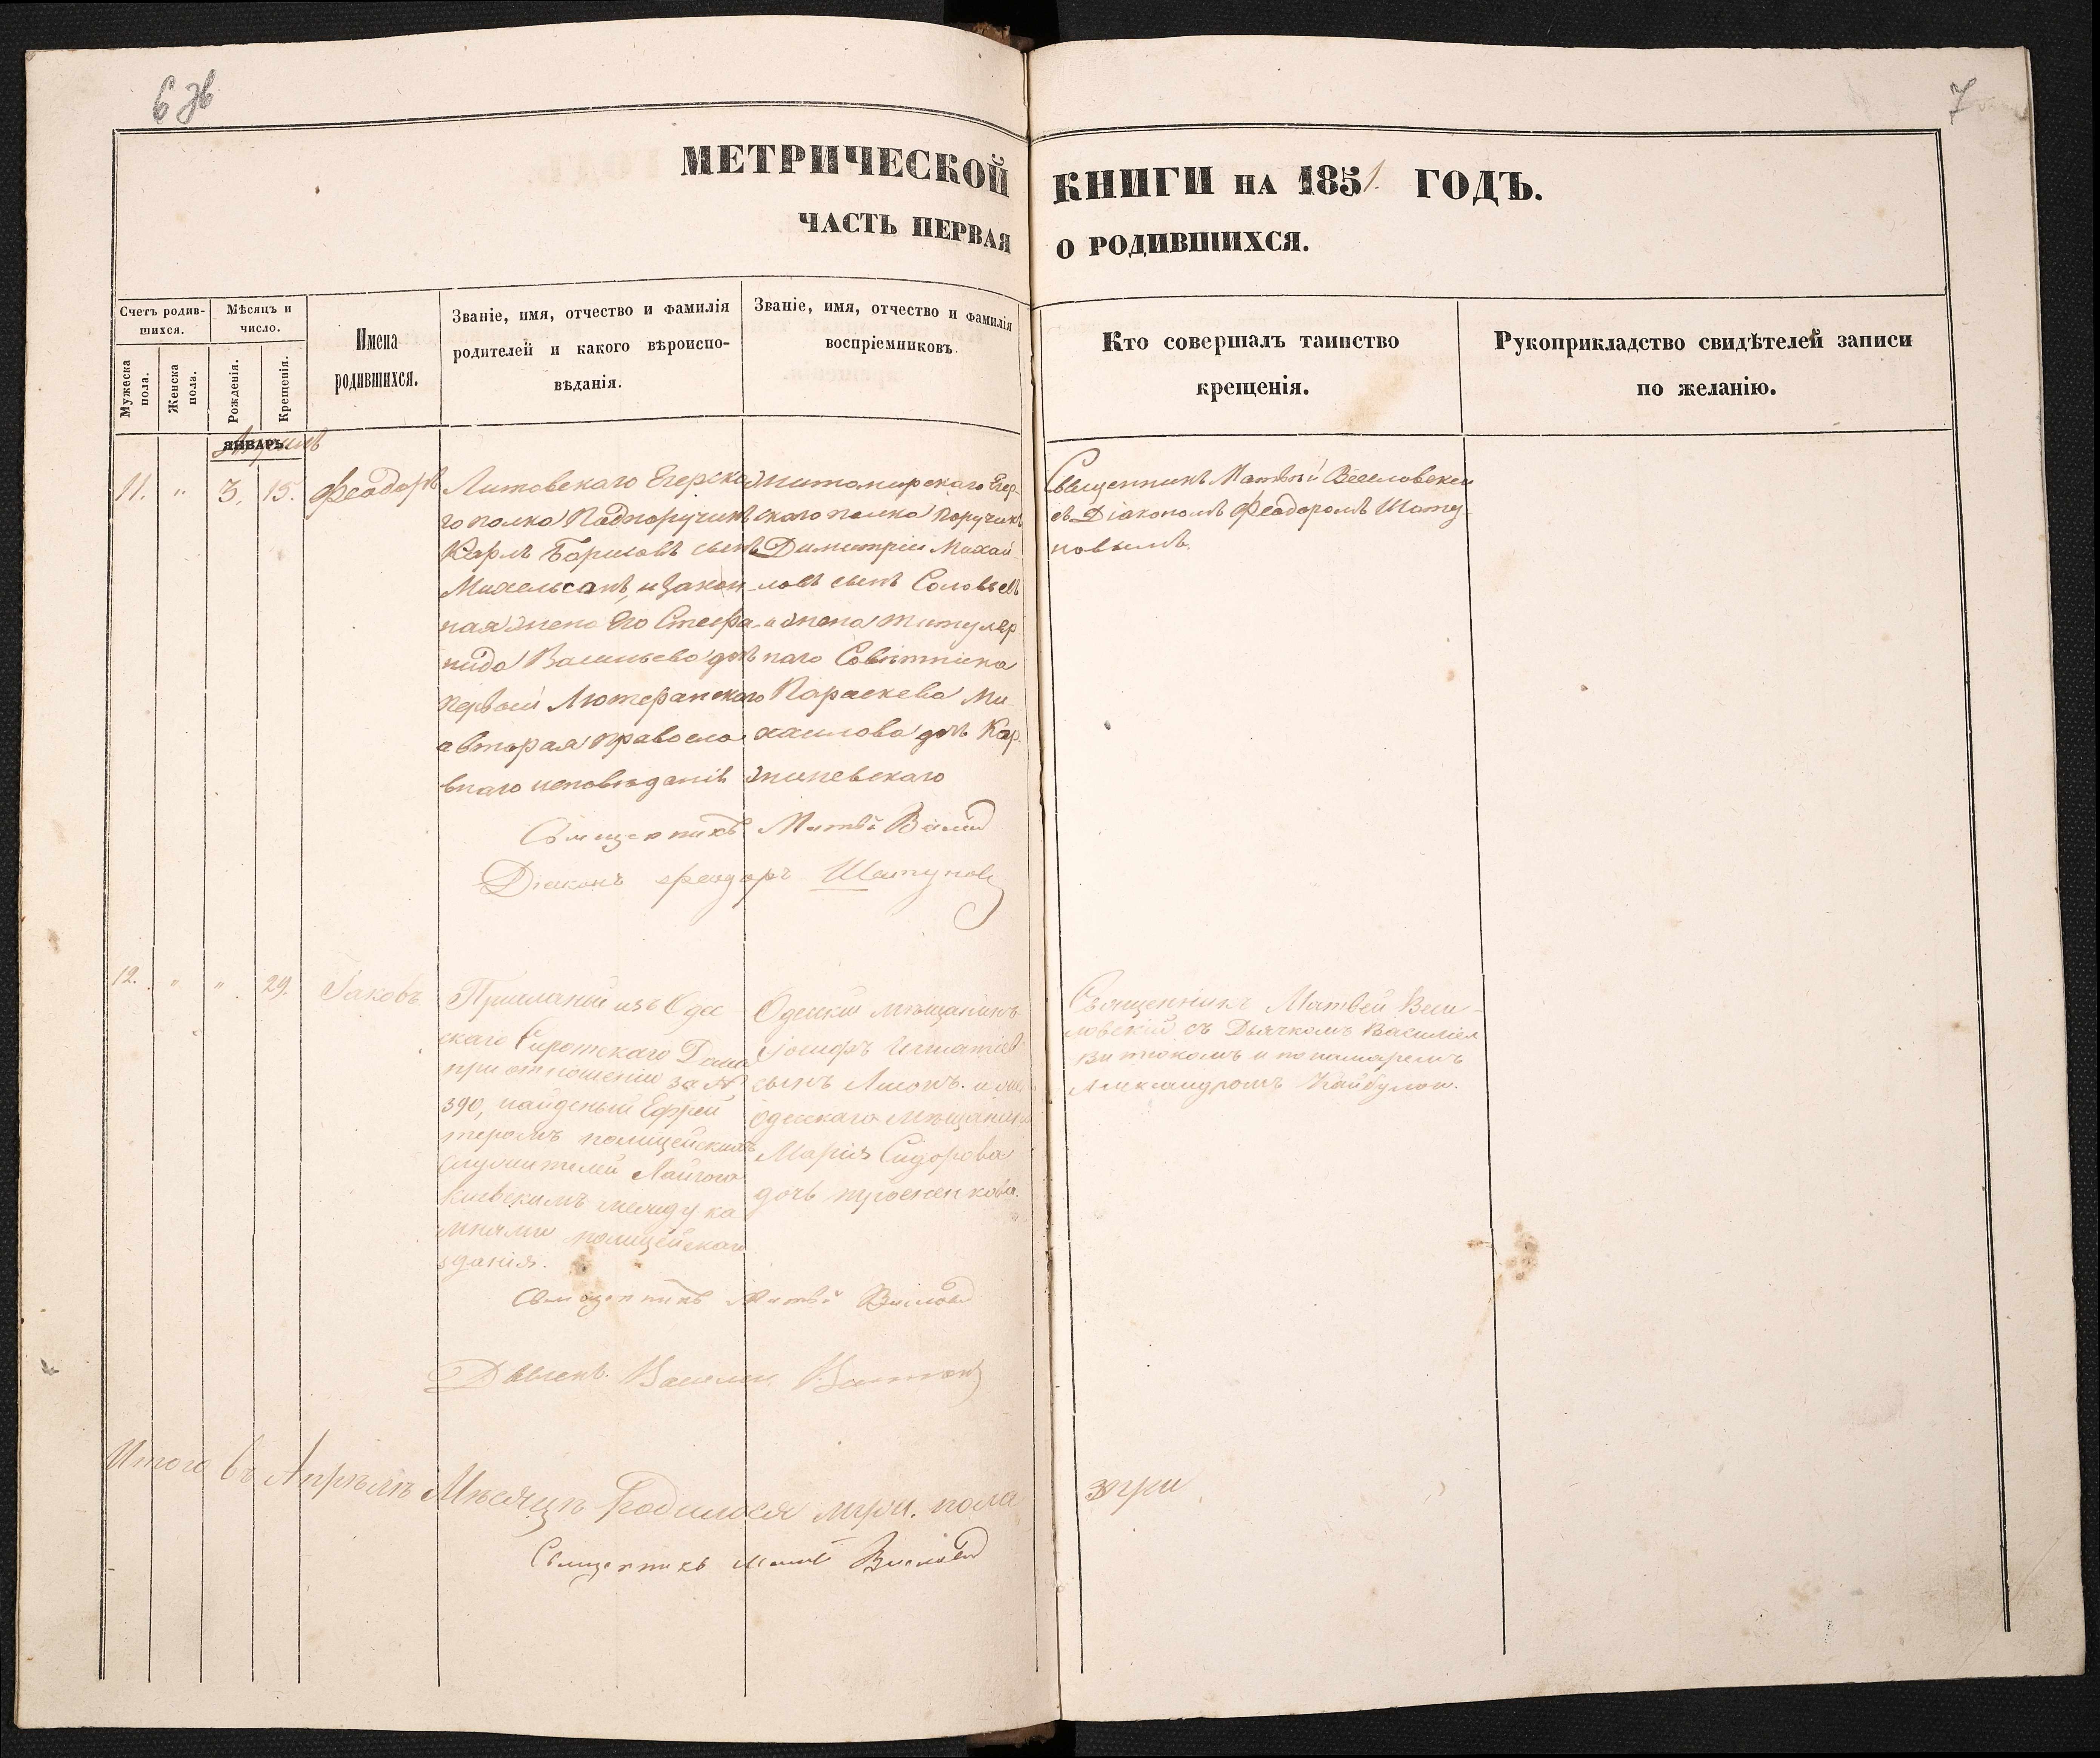 6 зв
7
МЕТРИЧЕСКОЙ КНИГИ НА 1851. ГОДЪ.
ЧАСТЬ ПЕРВАЯ О РОДИВШИХСЯ.
Счетъ родив-
шихся.
Мужеска
пола.
Женска
пола.
Мѣсяцъ и
число.
Рожденія.
Крещенія.
Имена
родившихся.
Званіе, имя, отчество и фамилія
родителей и какого вѣроиспо-
вѣданія.
Званіе, имя, отчество и фамилія
воспріемниковъ.
Кто совершалъ таинство
крещенія.
Рукоприкладство свидѣтелей записи
по желанію.
ЯНВАРЬ
11. " 3. 15. Феодоръ
Литовскаго Егерска
го полка Подпоручикъ
Карлъ Борисовъ сынъ
Михельсонъ, и закон
ная жена Его Стефа
нида Васильева дочь
первой Лютеранскаго
а вторая Правосла
внаго исповѣданія
Житомирскаго Егер-
скаго полка Поручикъ
Димитрій Михай
ловъ сынъ Соловьевъ
и жена титуляр
наго Совѣтника
Параскева Ми-
хаилова дочь Кар
жиневскаго
Священникъ Матвѣй Веселовскій
съ Діакономъ Феодоромъ Шату
новымъ.
Священникъ Матвѣй
Діаконъ Феодоръ Шатунов
12. " " 29. Іаковъ
Присланый изъ Одес
скаго Сиротскаго Дома
при отношеніи за №
390, найденый Ефрей
теромъ полицейскихъ
служителей
между ка
мнями полицейскаго
зданія.
Одесскій мѣщанинъ
Іосифъ Игнатіев
сынъ
одесскаго мѣщанина
Марія Сидорова
дочь
Священникъ Матвей Весе-
ловскій съ Дьячкомъ Василіем
Витюкомъ и понамаремъ
Александромъ
Священникъ Матвѣй
Дьячекъ Василій
Итого въ Апрѣлѣ Мѣсяцѣ Родилося три. пола
три
Священникъ